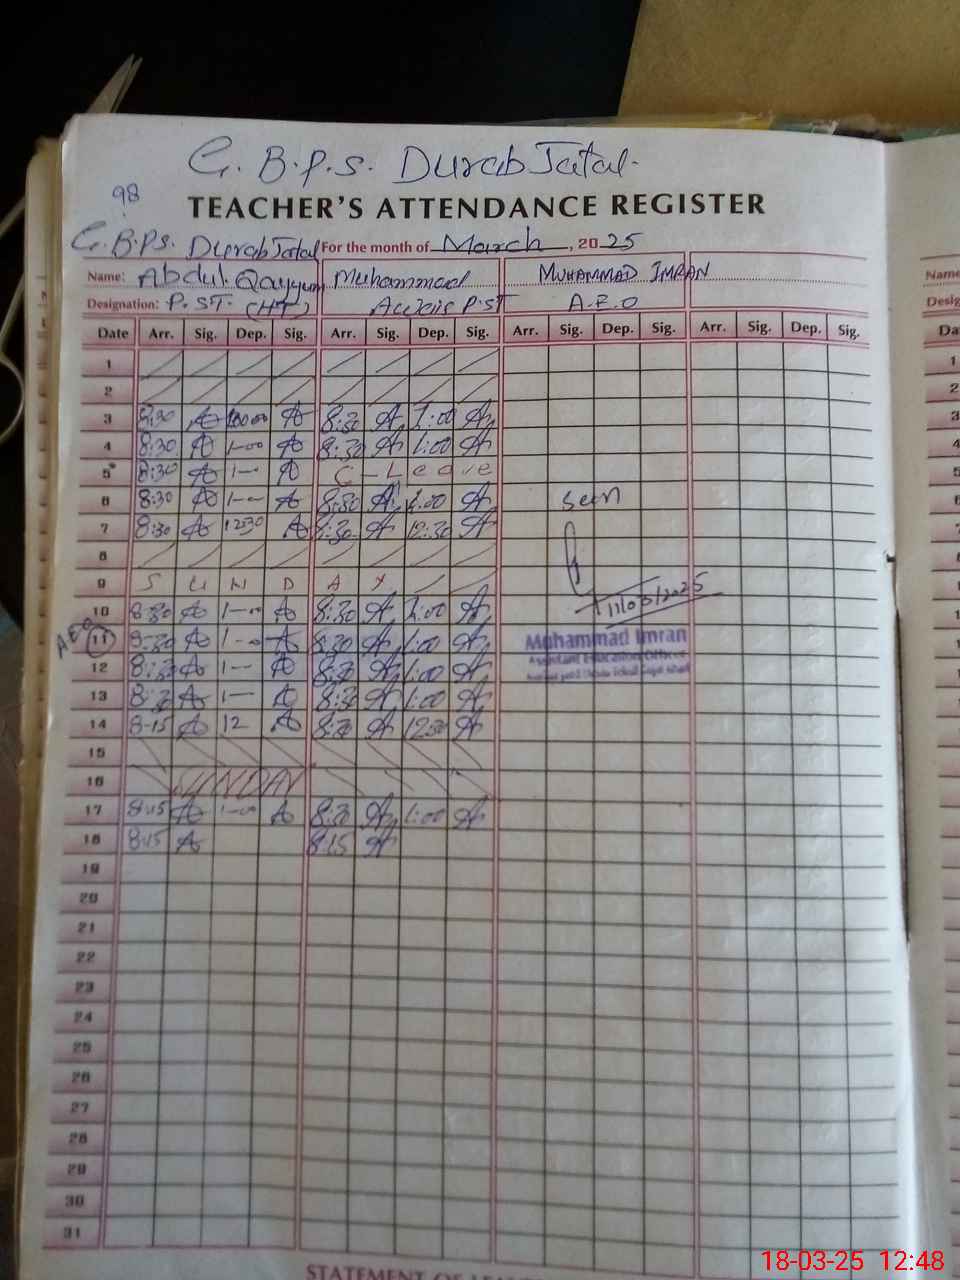 G.B.P.S. Durab Jatal.
98
TEACHER'S ATTENDANCE REGISTER
G.B.P.S. Durab Jatal For the month of March, 2025
Name: Abdul Qayyum Muhammad MUHAMMAD IMRAN Name
Designation: P.ST. (HT) P.ST A.E.O Desig
Date Arr. Sig. Dep. Sig. Arr. Sig. Dep. Sig. Arr. Sig. Dep. Sig. Arr. Sig. Dep. Sig. Da
1 1
2 2
3 8:30 8:30 1:00 3
4 8:30 1-00 8:30 1:00 4
5 8:30 1- C-Leave 5
6 8:30 1-00 8:30 1:00 seen 6
7 8:30 1230 8:30 12:30 7
8 8
9 S U N D A Y 9
10 8:30 1-00 8:30 1:00 11/03/2025 10
AEO 11 8:30 1-00 8:30 1:00 Muhammad Imran 11
Assistant Education Officer
12 8:30 1- 8:30 1:00 12
13 8:30 1- 8:30 1:00 13
14 8-15 12 8:30 1230 14
15 15
16 SUNDAY 16
17 8:15 1-00 8:30 1:00 17
18 8:15 8:15 18
19 19
20 20
21 21
22 22
23 23
24 24
25 25
26 26
27 27
28 28
29 29
30 30
31 31
STATEMENT OF
18-03-25 12:48